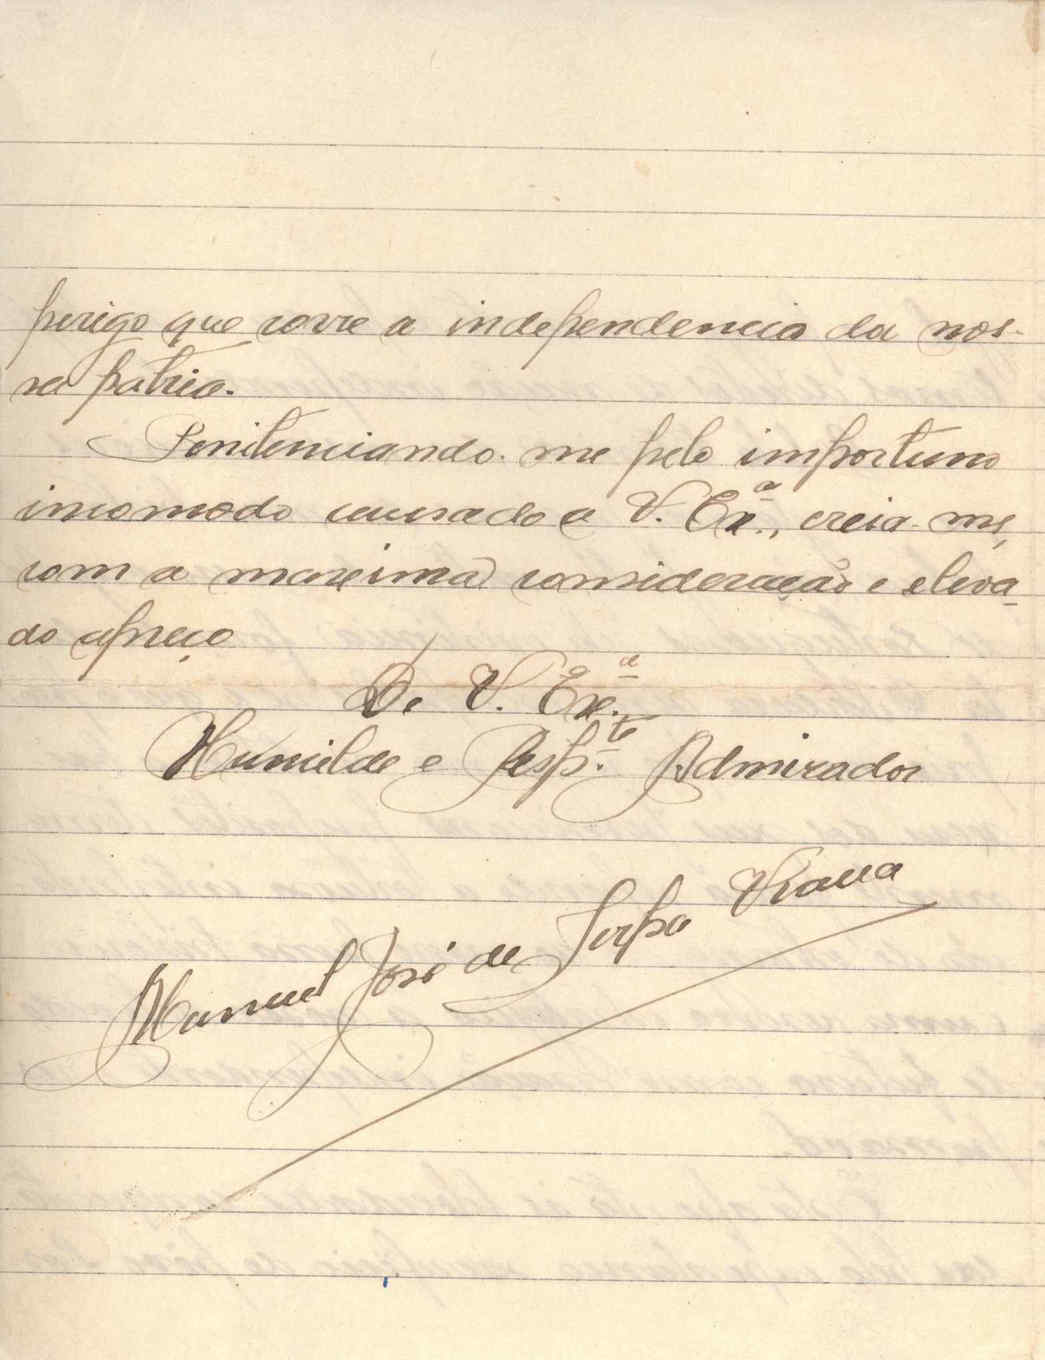 perigo que corre a independencia da nos-
sa patria.
Penitenciando-me pelo importuno
incomodo causado a V. Exª., creia-me,
com a maxima consideração e eleva-
do apreço
De V. Exª.
Humilde e Respto. Admirador
Manuel José de Serpa Viana